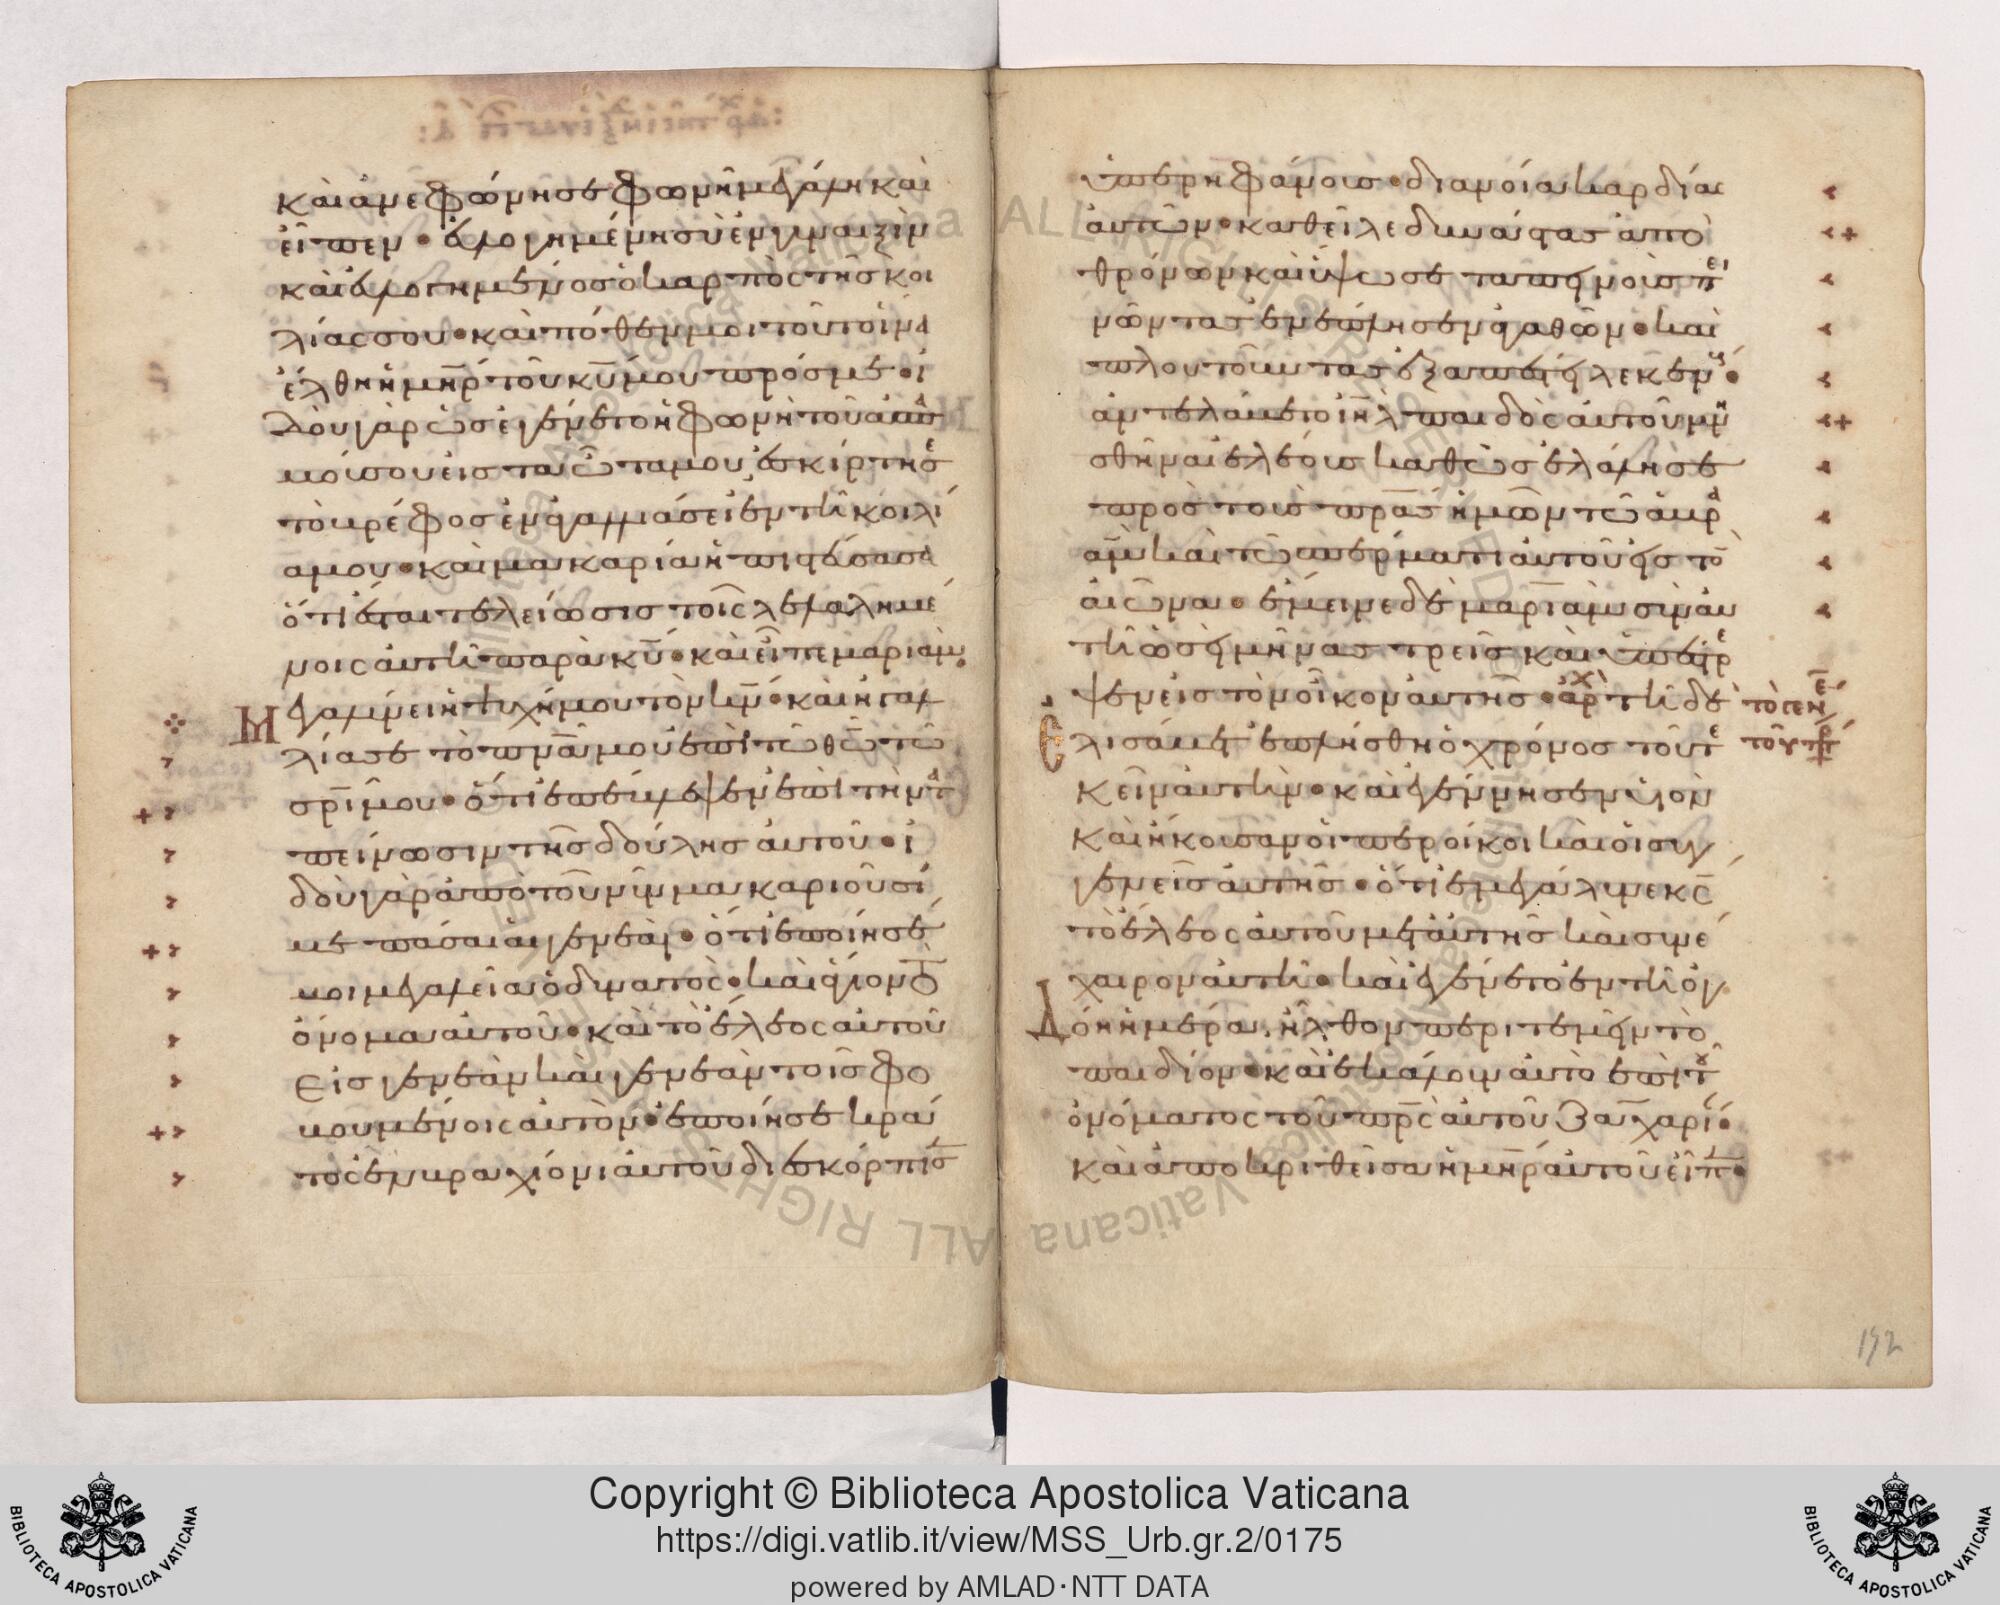 καὶ ἀνεφώνησε φωνῆ μεγάλη καὶ
εἶπεν · εὐλογημένη σὺ ἐν γυναιξὶν
καὶ εὐλογημένος ὁ καρπὸς τῆς κοι
λίας σου · καὶ πόθεν μοι τοῦτο ἵνα
ἔλθη ἡ μη̅ρ τοῦ κυ̅ μου πρός με · ἰ
δοὺ γὰρ ὡς ἐγένετο ἡ φωνὴ τοῦ ἀσπα
μοῦ σου εἰς τὰ ὦτα μου, ἐσκίρτησε
τὸ βρέφος ἐν ἀγαλλιάσει ἐν τῆ κοιλί
α μου · καὶ μακαρία ἡ πιστεύσασα
ὅτι ἔσται τελείωσις τοῖς λελαλημέ
νοις αὐτῆ παρὰ κυ̅ · καὶ εἶπε μαριάμ ·
Μεγαλύνει ἡ ψυχή μου τὸν κν̅ · καὶ ἠγαλ
λίασε τὸ πνα̅ μου ἐπὶ τῶ θω̅ τῶ
σρι̅ μου · ὅτι ἐπέβλεψεν ἐπὶ τὴν τα
πείνωσιν τῆς δούλης αὐτοῦ · ἰ
δοὺ γὰρ ἀπὸ τοῦ νῦν μακαριοῦσί
με πᾶσαι αἱ γενεαί · ὅτι ἐποίησέ
μοι μεγαλεῖα ὁ δυνατὸς · καὶ ἅγιον τὸ
ὄνομα αὐτοῦ · καὶ τὸ ἔλεος αὐτοῦ
εἰς γενεὰν καὶ γενεὰν τοῖς φο
βουμένοις αὐτὸν · ἐποίησε κρά
τος ἐν βραχίονι αὐτοῦ διεσκόρπισ
ὑπερηφάνους · διανοία καρδίας
αὐτῶν · καθεῖλε δυνάστας ἀπὸ
θρόνων καὶ ὕψωσε ταπεινοὺς πει
νῶντας ἐνέπλησεν ἀγαθῶν · καὶ
πλουτοῦντας ἐξαπέστειλε κενούς ·
ἀντελάβετο ιη̅λ παιδὸς αὐτοῦ μνη
σθῆναι ἐλέους καθὼς ἐλάλησε
πρὸς τοὺς πρα̅ς ἡμῶν τῶ ἀβρα
ὰμ καὶ τῶ σπέρματι αὐτοῦ εἰς τὸ
αἰῶνα · ἔμεινε δὲ μαριὰμ σὺν αὐ
τῆ ὡσεὶ μῆνας τρεῖς καὶ ὑπέστρε
ψεν εἰς τὸν οἶκον αὐτῆς · αρχ τῆ δὲ
Ελισάβετ ἐπλήσθη ὁ χρόνος τοῦ τε
κεῖν αὐτὴν · καὶ ἐγέννησεν υἱὸν
καὶ ἤκουσαν οἱ περίοικοι καὶ οἱ συγ
γενεῖς αὐτῆς · ὅτι ἐμεγάλυνε κς̅
τὸ ἔλεος αὐτοῦ μετ' αὐτῆς καὶ συνέ
χαιρον αὐτῆ · καὶ ἐγένετο ἐν τῆ ὀγ
δόη ἡμέρα, ἦλθον περιτεμεῖν τὸ
παιδίον · καὶ ἐκάλουν αὐτὸ ἐπὶ τ
ὀνόματος τοῦ πρς̅ αὐτοῦ ζαχαρί ·
καὶ ἀποκριθεῖσα ἡ μη̅ρ αὐτοῦ εἶπ ·
192
Copyright © Biblioteca Apostolica Vaticana
https://digi.vatlib.it/view/MSS_Urb.gr.2/0175
powered by AMLAD·NTT DATA
BIBLIOTECA APOSTOLICA VATICANA
BIBLIOTECA APOSTOLICA VATICANA